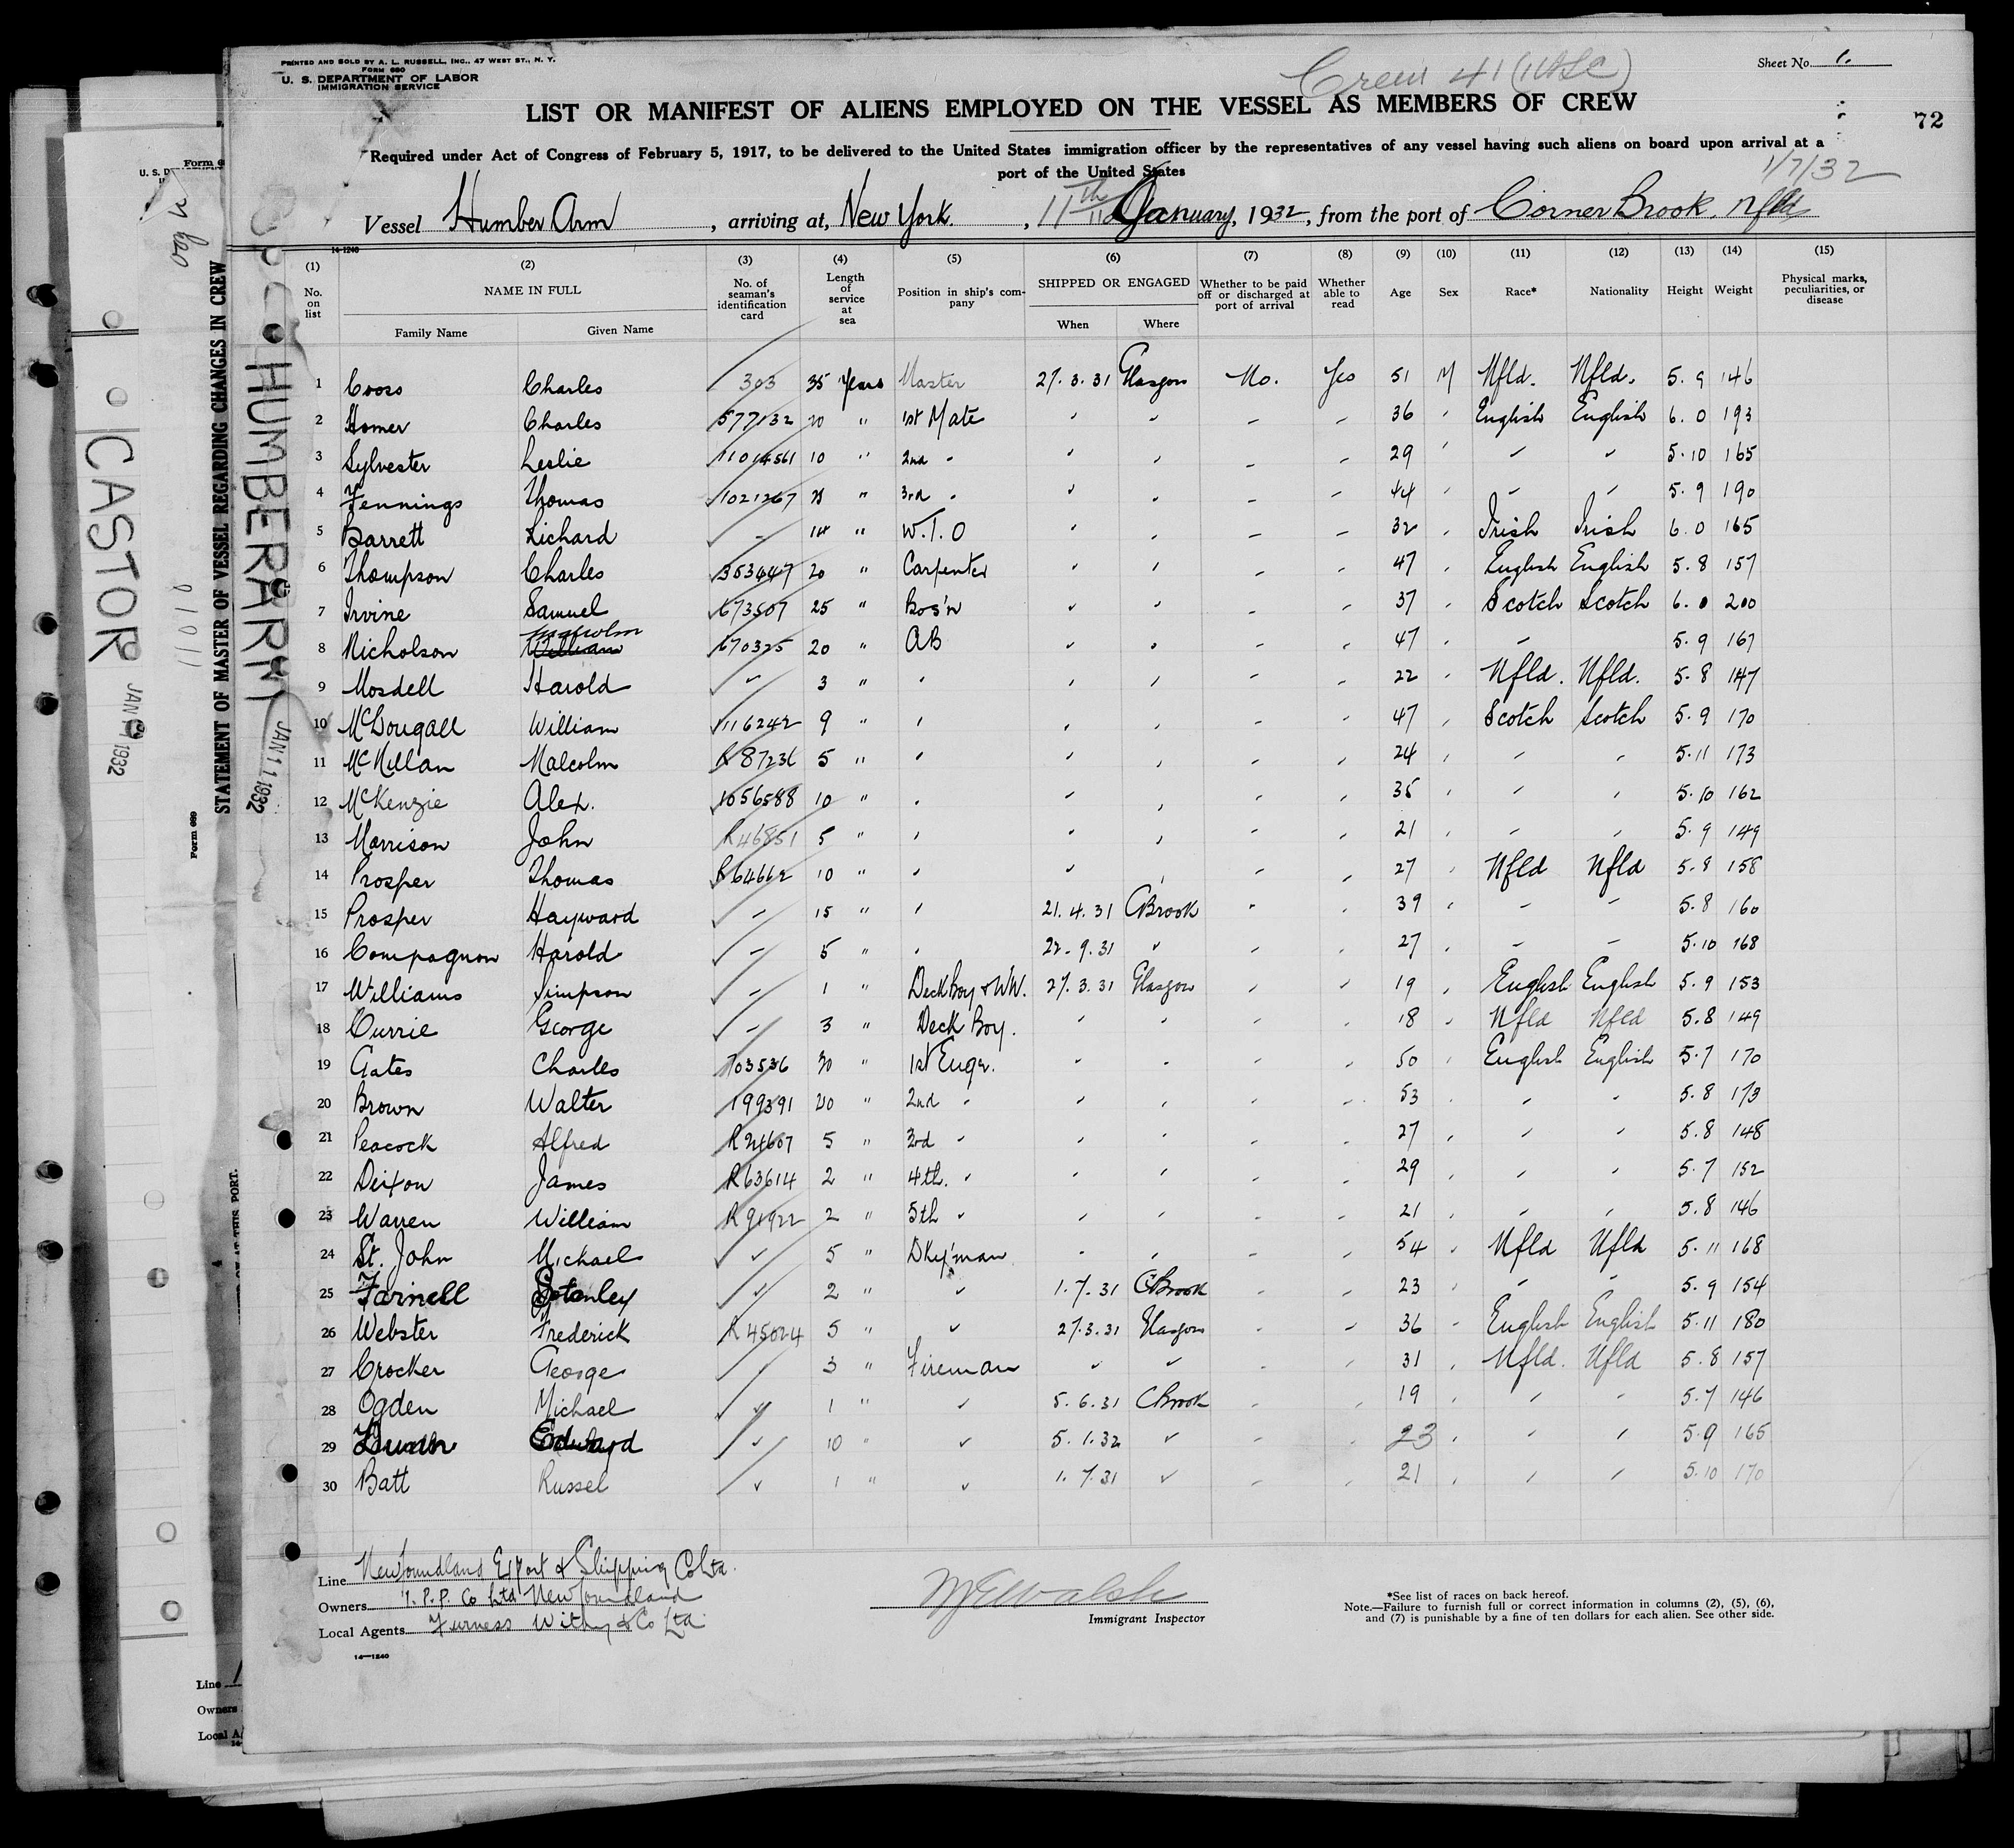 PRINTED AND SOLD BY A. L. RUSSELL, INC., 47 WEST ST., N. Y.
FORM 680
U. S. DEPARTMENT OF LABOR
IMMIGRATION SERVICE
Crew 41
Sheet No. 1.
LIST OR MANIFEST OF ALIENS EMPLOYED ON THE VESSEL AS MEMBERS OF CREW
72
Required under Act of Congress of February 5, 1917, to be delivered to the United States immigration officer by the representatives of any vessel having such aliens on board upon arrival at a
port of the United States
1/7/32
Vessel Humber Arm, arriving at, New York., 11th January, 1932, from the port of Corner Brook. Nfld
14-1240
(1) (2) (3) (4) (5) (6) (7) (8) (9) (10) (11) (12) (13) (14) (15)
No. on list NAME IN FULL Family Name Given Name No. of seaman's identification card Length of service at sea Position in ship's company SHIPPED OR ENGAGED When Where Whether to be paid off or discharged at port of arrival Whether able to read Age Sex Race* Nationality Height Weight Physical marks, peculiarities, or disease
1 Cross Charles 303 35 Years Master 27.3.31 Glasgow No. Yes 51 M Nfld. Nfld. 5.9 146
2 Homer Charles 577132 20 " 1st Mate " " - - 36 " English English 6.0 193
3 Sylvester Leslie 11014561 10 " 2nd " " " - - 29 " " " 5.10 165
4 Jennings Thomas 1021267 " 3rd " " " - - 44 " " " 5.9 190
5 Barrett Richard - 14 " W.T.O " " - - 32 " Irish Irish 6.0 165
6 Thompson Charles 353447 20 " Carpenter " " - - 47 " English English 5.8 157
7 Irvine Samuel 673507 25 " Bos'n " " - - 37 " Scotch Scotch 6.0 200
8 Nicholson Malcolm 670325 20 " AB " " - - 47 " " 5.9 167
9 Mosdell Harold - 3 " " " " - - 22 " Nfld. Nfld. 5.8 147
10 McDougall William 1116242 9 " " " " - - 47 " Scotch Scotch 5.9 170
11 McMillan Malcolm R87236 5 " " " " - - 24 " " " 5.11 173
12 McKenzie Alex. 1056588 10 " " " " - - 35 " " " 5.10 162
13 Morrison John R46851 5 " " " " - - 21 " " " 5.9 149
14 Prosper Thomas R64662 10 " " " " - - 27 " Nfld Nfld 5.8 158
15 Prosper Hayward - 15 " " 21.4.31 CBrook - - 39 " " " 5.8 160
16 Compagnon Harold - 5 " " 22-9.31 " - - 27 " " " 5.10 168
17 Williams Simpson - 1 " Deck Boy & WW. 27.3.31 Glasgow - - 19 " English English 5.9 153
18 Currie George - 3 " Deck Boy. " " - - 18 " Nfld Nfld 5.8 149
19 Gates Charles 703536 30 " 1st Engr. " " - - 50 " English English 5.7 170
20 Brown Walter 199391 20 " 2nd " " " - - 53 " " " 5.8 173
21 Peacock Alfred R24607 5 " 3rd " " " - - 27 " " " 5.8 148
22 Deixon James R63614 2 " 4th. " " " - - 29 " " " 5.7 152
23 Warren William R91922 2 " 5th " " " - - 21 " " " 5.8 146
24 St. John Michael " 5 " Dkyman " " - - 54 " Nfld Nfld 5.11 168
25 Farnell Stanley " 2 " " 1.7.31 CBrook - - 23 " " " 5.9 154
26 Webster Frederick R45024 5 " " 27.3.31 Glasgow - - 36 " English English 5.11 180
27 Crocker George " 3 " Fireman " " - - 31 " Nfld. Nfld 5.8 157
28 Ogden Michael " 1 " " 5.6.31 CBrook - - 19 " " " 5.7 146
29 Edward " 10 " " 5.1.32 " - - 23 " " " 5.9 165
30 Batt Russel " 1 " " 1.7.31 " - - 21 " " " 5.10 170
Line Newfoundland Export & Shipping Co Ltd.
Owners I.P.P. Co Ltd Newfoundland
Local Agents Furness Withy & Co Ltd.
14—1240
Walsh
Immigrant Inspector
*See list of races on back hereof.
Note.—Failure to furnish full or correct information in columns (2), (5), (6),
and (7) is punishable by a fine of ten dollars for each alien. See other side.
HUMBER ARM JAN 11 1932
STATEMENT OF MASTER OF VESSEL REGARDING CHANGES IN CREW
Form 689
CASTOR JAN 1932
Line
Owners
Local A